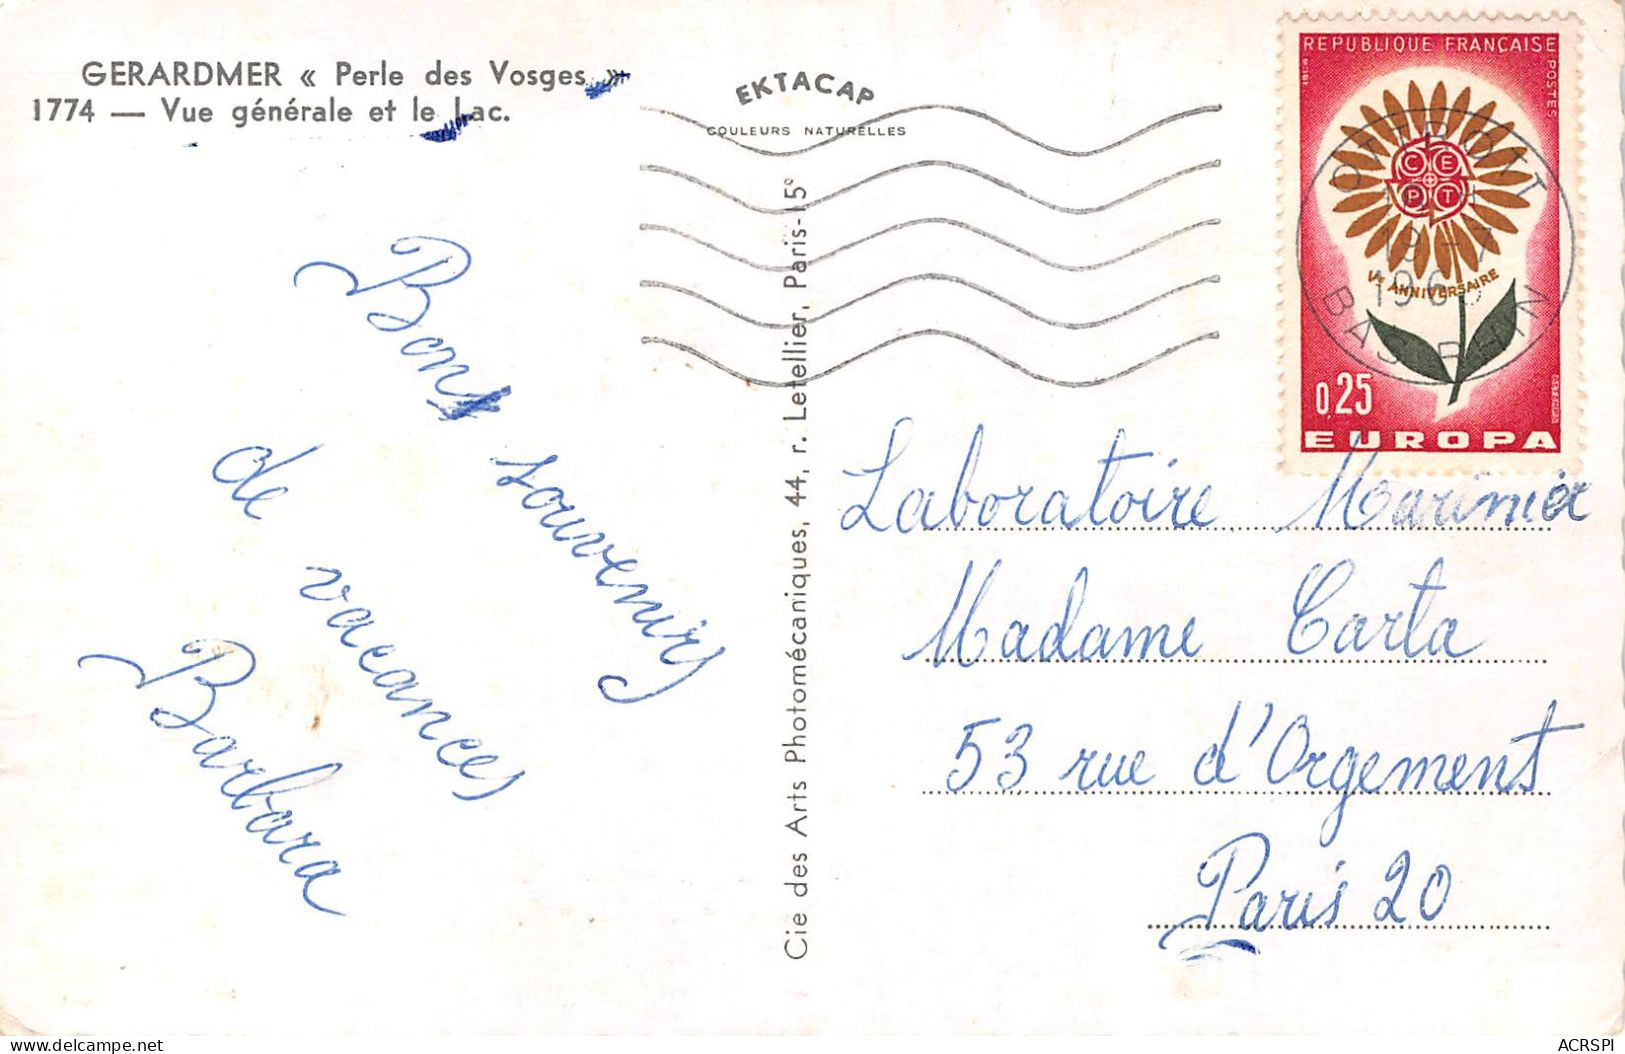 GERARDMER « Perle des Vosges »
1774 — Vue générale et le Lac.
EKTACAP
COULEURS NATURELLES
Bons souvenirs
de vacances
Barbara
Cie des Arts Photomécaniques, 44, r. Letellier, Paris-15°
REPUBLIQUE FRANÇAISE
POSTES
1964
C E
P T
Ve ANNIVERSAIRE
0,25
EUROPA
19 H
19 -7
BAS RHIN
Laboratoire Marinier
Madame Carta
53 rue d'Orgement
Paris 20
delcampe.net
ACRSPI